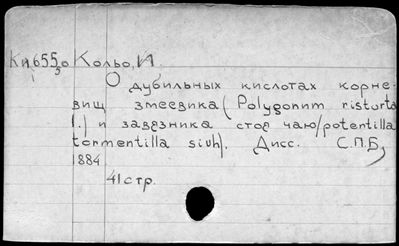 Кп655₀ Кольо, И.
О дубильных кислотах корне-
вищ змеевика (Polygonum risturta
l.) и завязника стоя чаю/potentilla
tormentilla siuh). Дисс. С.П.Б,
1884
41 стр.